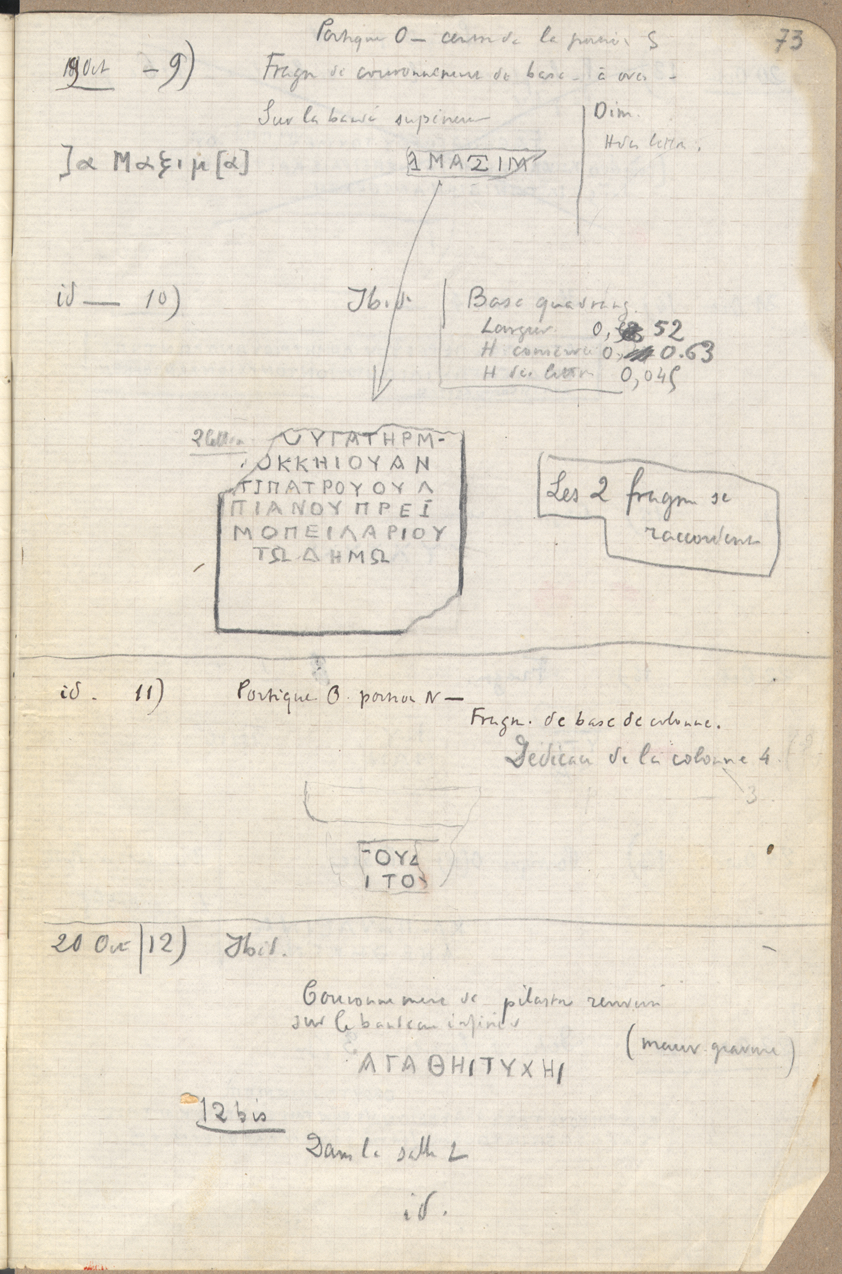 73
Portique O – centre de la portion S
19 Oct – 9) Fragm de couronnement de base – à oves –
Sur la bande supérieure
Dim.
H des lettr.
]α Μαξιμ[α]
ΑΜΑΞΙΜ
id — 10) Ibid.
Base quadrang.
Largeur 0, 52
H conservée 0, 0.63
H des lettres 0,045
2 lettres
ΘΥΓΑΤΗΡΜ-
ΟΚΚΗΙΟΥΑΝ
ΤΙΠΑΤΡΟΥΟΥΛ
ΠΙΑΝΟΥΠΡΕΙ
ΜΟΠΕΙΛΑΡΙΟΥ
ΤΩΔΗΜΩ
Les 2 fragm se
raccordent
id. 11) Portique O. portion N —
Fragm. de base de colonne.
Dédicace de la colonne 4
3
ΤΟΥΔ
Ι ΤΟΥ
20 Oct 12) Ibid.
Couronnement de pilastre
sur le bandeau inférieur
(mauv. gravure)
ΑΓΑΘΗΙΤΥΧΗΙ
12 bis
Dans la salle L
id.